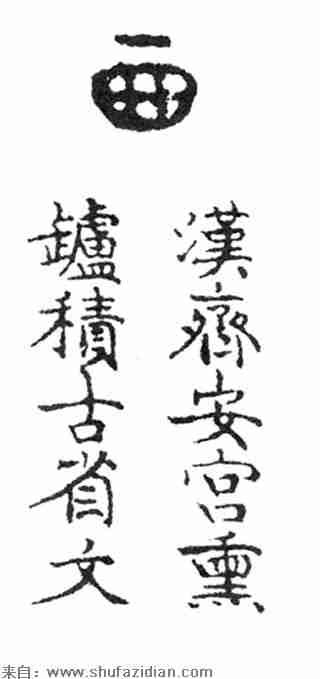 漢齊安宮熏
鑪積古省文
来自：www.shufazidian.com